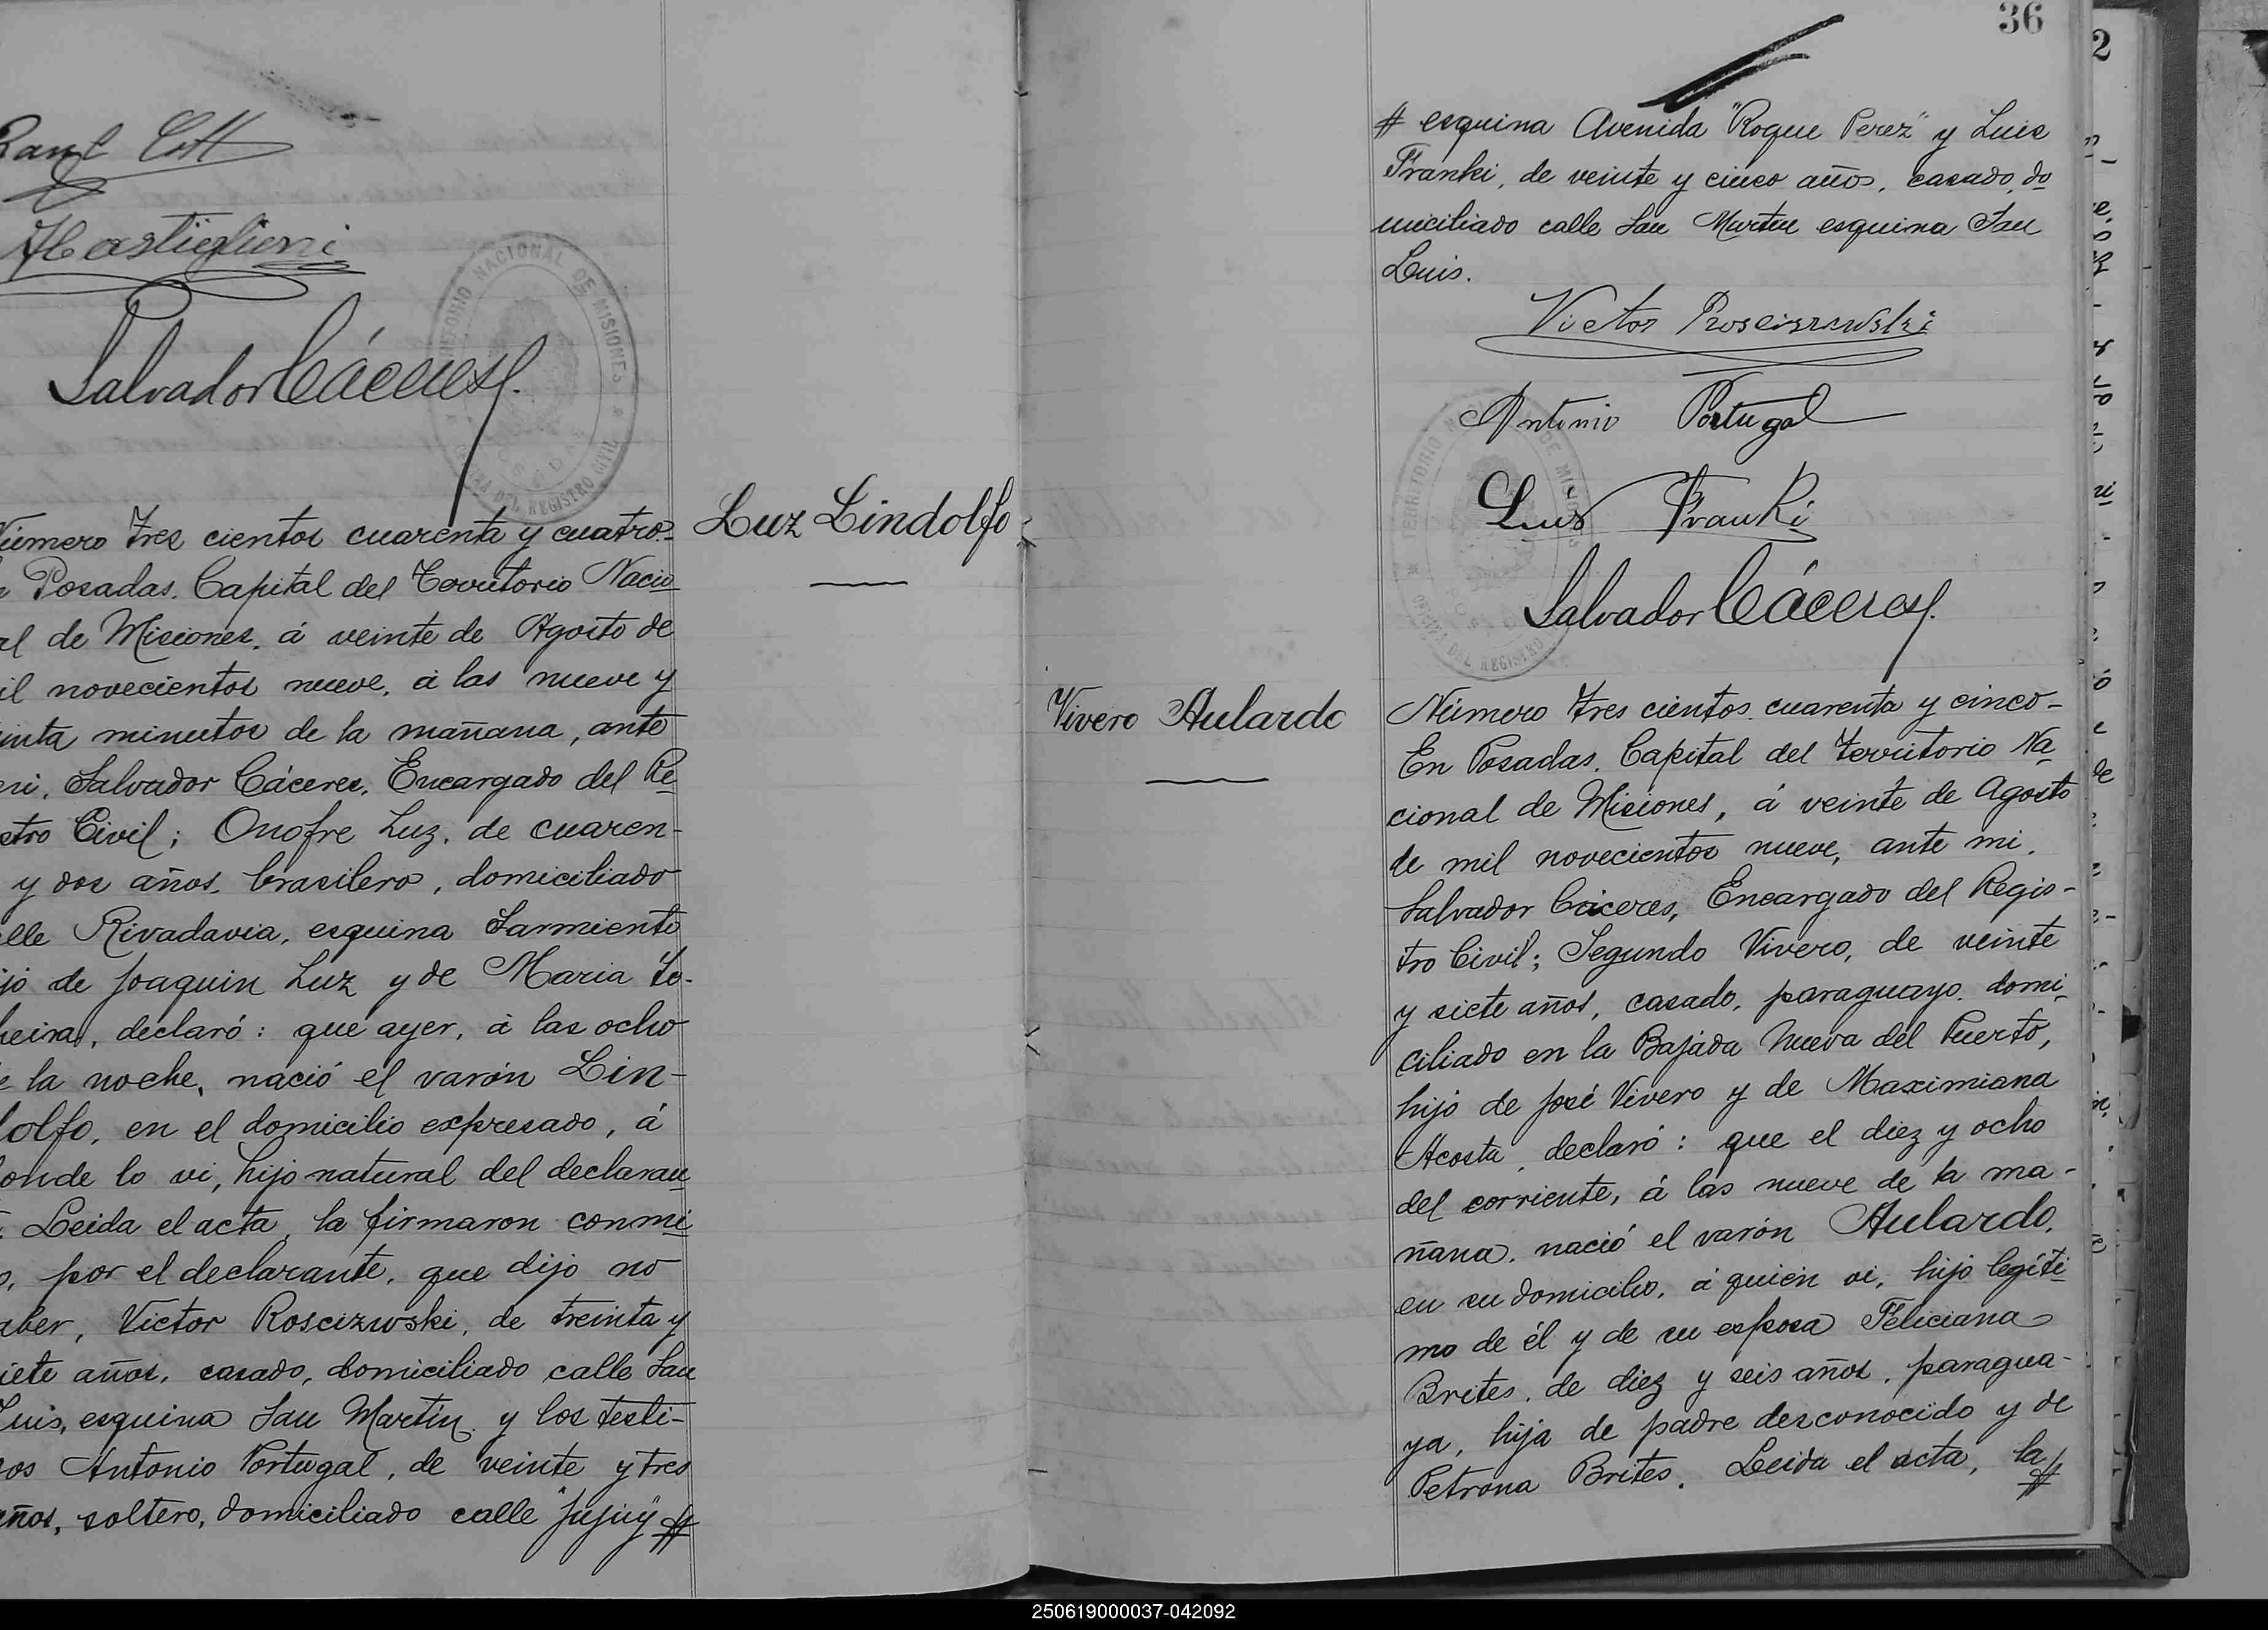 Castiglioni
TERRITORIO NACIONAL DE MISIONES
POSADAS
OFICINA DEL REGISTRO CIVIL
Salvador Cáceres
Número tres cientos cuarenta y cuatro.
Posadas. Capital del Territorio Nacio
al de Misiones, á veinte de Agosto de
il novecientos nueve, á las nueve y
inta minutos de la mañana, ante
mi, Salvador Cáceres, Encargado del Re
stro Civil; Onofre Luz, de cuaren-
y dos años, brasilero, domiciliado
lle Rivadavia, esquina Sarmiento
jo de Joaquin Luz y de Maria
declaró: que ayer, á las ocho
e la noche, nació el varón Lin-
dolfo, en el domicilio expresado, á
onde lo vi, hijo natural del declaran
Leida el acta, la firmaron conmi
o, por el declarante, que dijo no
aber, Victor Roscizwski, de treinta y
iete años, casado, domiciliado calle San
Luis, esquina San Martín, y los testi-
os Antonio Portugal, de veinte y tres
años, soltero, domiciliado calle "Jujuy" #
Luz Lindolfo
36
# esquina Avenida "Roque Perez" y Luis
Franki, de veinte y cinco años, casado, do
miciliado calle San Martin esquina San
Luis.
Victor Roscizewski
Antonio Portugal
Luis Franki
TERRITORIO NACIONAL DE MISIONES
POSADAS
OFICINA DEL REGISTRO CIVIL
Salvador Cáceres
Vivero Aulardo
Número tres cientos cuarenta y cinco-
En Posadas. Capital del Territorio Na
cional de Misiones, á veinte de Agosto
de mil novecientos nueve, ante mi,
Salvador Cáceres, Encargado del Regis-
tro Civil; Segundo Vivero, de veinte
y siete años, casado, paraguayo, domi
ciliado en la Bajada Nueva del Puerto,
hijo de José Vivero y de Maximiana
Acosta, declaró: que el diez y ocho
del corriente, á las nueve de la ma-
ñana, nació el varón Aulardo,
en su domicilio, á quien vi, hijo legíti
mo de él y de su esposa Feliciana
Brites, de diez y seis años, paragua-
ya, hija de padre desconocido y de
Petrona Brites. Leida el acta, la #
2
250619000037-042092